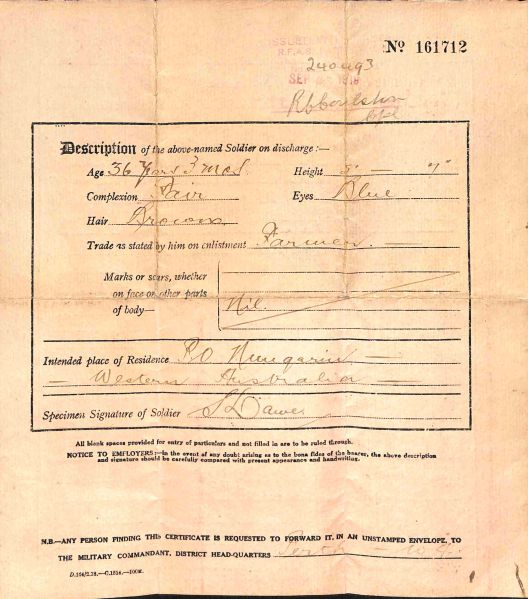 Nº 161712
SEP
Description of the above-named Soldier on discharge:—
Age 36 Years 3 mos Height 5' — "7"
Complexion Fair Eyes Blue
Hair Brown
Trade as stated by him on enlistment Farmer
Marks or scars, whether
on face or other parts
of body— Nil
Intended place of Residence P.O. Nungarin —
— Western Australia —
Specimen Signature of Soldier Dawe
All blank spaces provided for entry of particulars and not filled in are to be ruled through.
NOTICE TO EMPLOYERS:—In the event of any doubt arising as to the bona fides of the bearer, the above description
and signature should be carefully compared with present appearance and handwriting.
N.B.—ANY PERSON FINDING THIS CERTIFICATE IS REQUESTED TO FORWARD IT, IN AN UNSTAMPED ENVELOPE, TO
THE MILITARY COMMANDANT, DISTRICT HEAD-QUARTERS Perth — W.A.